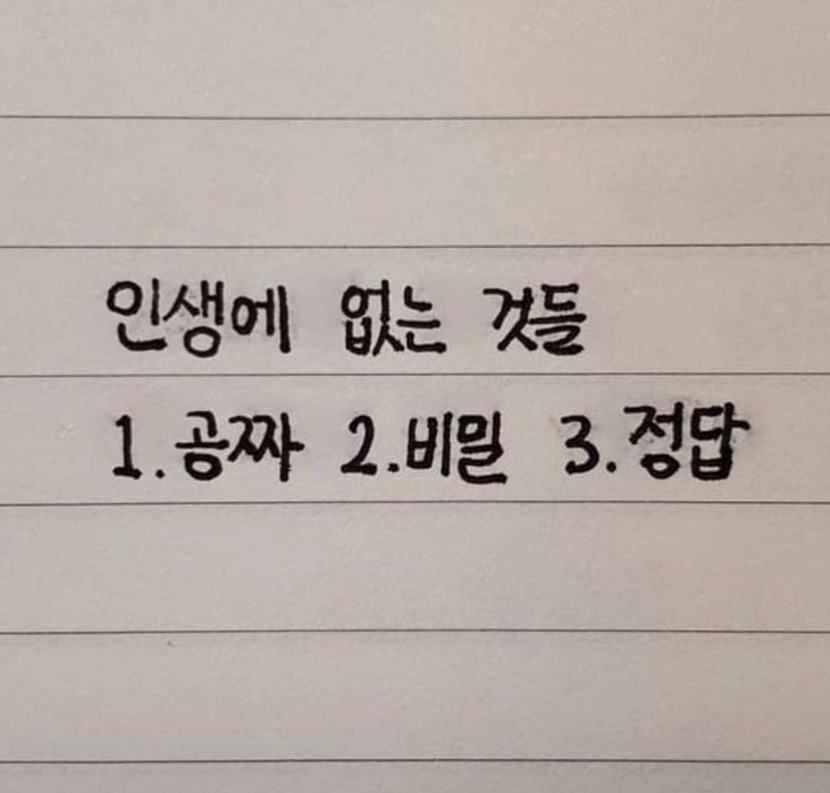 인생에 없는 것들
1.공짜 2.비밀 3.정답